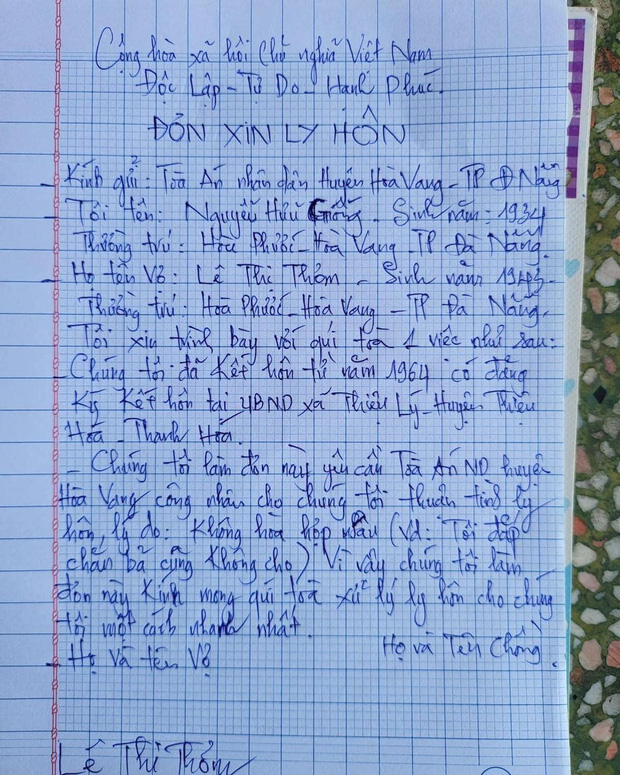 Cộng hòa xã hội Chủ nghĩa Việt Nam
Độc Lập - Tự Do - Hạnh Phúc.
ĐƠN XIN LY HÔN
- Kính gửi: Tòa Án nhân dân Huyện Hòa Vang - TP Đ Nẵng
- Tôi tên: Nguyễn Hữu Giống - Sinh năm: 1934
Thường trú: Hòa Phước - Hòa Vang - TP Đà Nẵng.
- Họ tên Vợ: Lê Thị Thơm - Sinh năm 1943-
Thường trú: Hoà Phước - Hòa Vang - TP Đà Nẵng.
Tôi xin trình bày với quí toà 1 việc như sau:
- Chúng tôi đã Kết hôn từ năm 1964 có đăng
Ký Kết hôn tại UBND xã Thiệu Lý - Huyện Thiệu
Hoá - Thanh Hóa.
- Chúng tôi làm đơn này yêu cầu Tòa Án ND huyện
Hòa Vang công nhân cho chúng tôi thuận tình ly
hôn, lý do: Không hòa hợp nhau (Vd: Tôi đắp
chăn bà cũng Không cho) Vì vậy chúng tôi làm
đơn này Kính mong quí toà xử lý ly hôn cho chúng
tôi một cách nhanh nhất.
Họ và Tên Chồng.
- Họ Và tên Vợ
Lê Thị Thơm